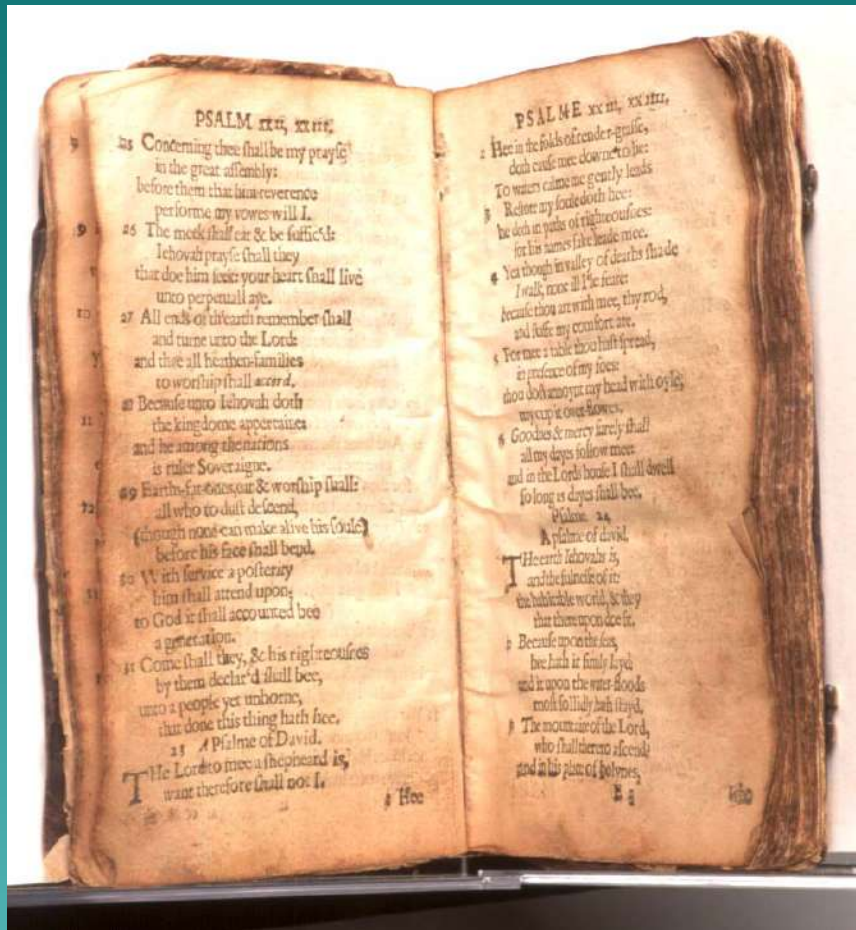 PSALM xxii, xxiii.
25 Concerning thee shall be my prayse
in the great assembly:
before them that him reverence
performe my vowes will I.
26 The meek shall eat & be suffic'd:
Iehovah prayse shall they
that doe him seek: your heart shall live
unto perpetuall aye.
27 All ends of th'earth remember shall
and turne unto the Lord:
and thee all heathen-families
to worship shall accord.
28 Because unto Iehovah doth
the kingdome appertaine:
and he among the nations
is ruler Soveraigne.
29 Earths-fat-ones, eat & worship shall:
all who to dust descend,
(though none can make alive his soule)
before his face shall bend.
30 With service a posterity
him shall attend upon;
to God it shall accounted bee
a generation.
31 Come shall they, & his righteousnes
by them declar'd shall bee,
unto a people yet unborne,
that done this thing hath hee.
23 A Psalme of David.
THe Lord to mee a shepheard is,
want therefore shall not I.
2 Hee
PSALME xxiii, xxiiii.
2 Hee in the folds of tender-grasse,
doth cause mee downe to lie:
To waters calme me gently leads
3 Restore my soule doth hee:
he doth in paths of righteousnes:
for his names sake leade mee.
4 Yea though in valley of deaths shade
I walk, none ill I'le feare:
because thou art with mee, thy rod,
and staffe my comfort are.
5 For mee a table thou hast spread,
in presence of my foes:
thou dost annoynt my head with oyle,
my cup it over-flowes.
6 Goodnes & mercy surely shall
all my dayes follow mee:
and in the Lords house I shall dwell
so long as dayes shall bee.
Psalme 24
A psalme of david.
THe earth Iehovahs is,
and the fulnesse of it:
the habitable world, & they
that thereupon doe sit.
2 Because upon the seas,
hee hath it firmly layd:
and it upon the water-floods
most sollidly hath stayd.
3 The mountaine of the Lord,
who shall thereto ascend?
and in his place of holynes,
E 3
who